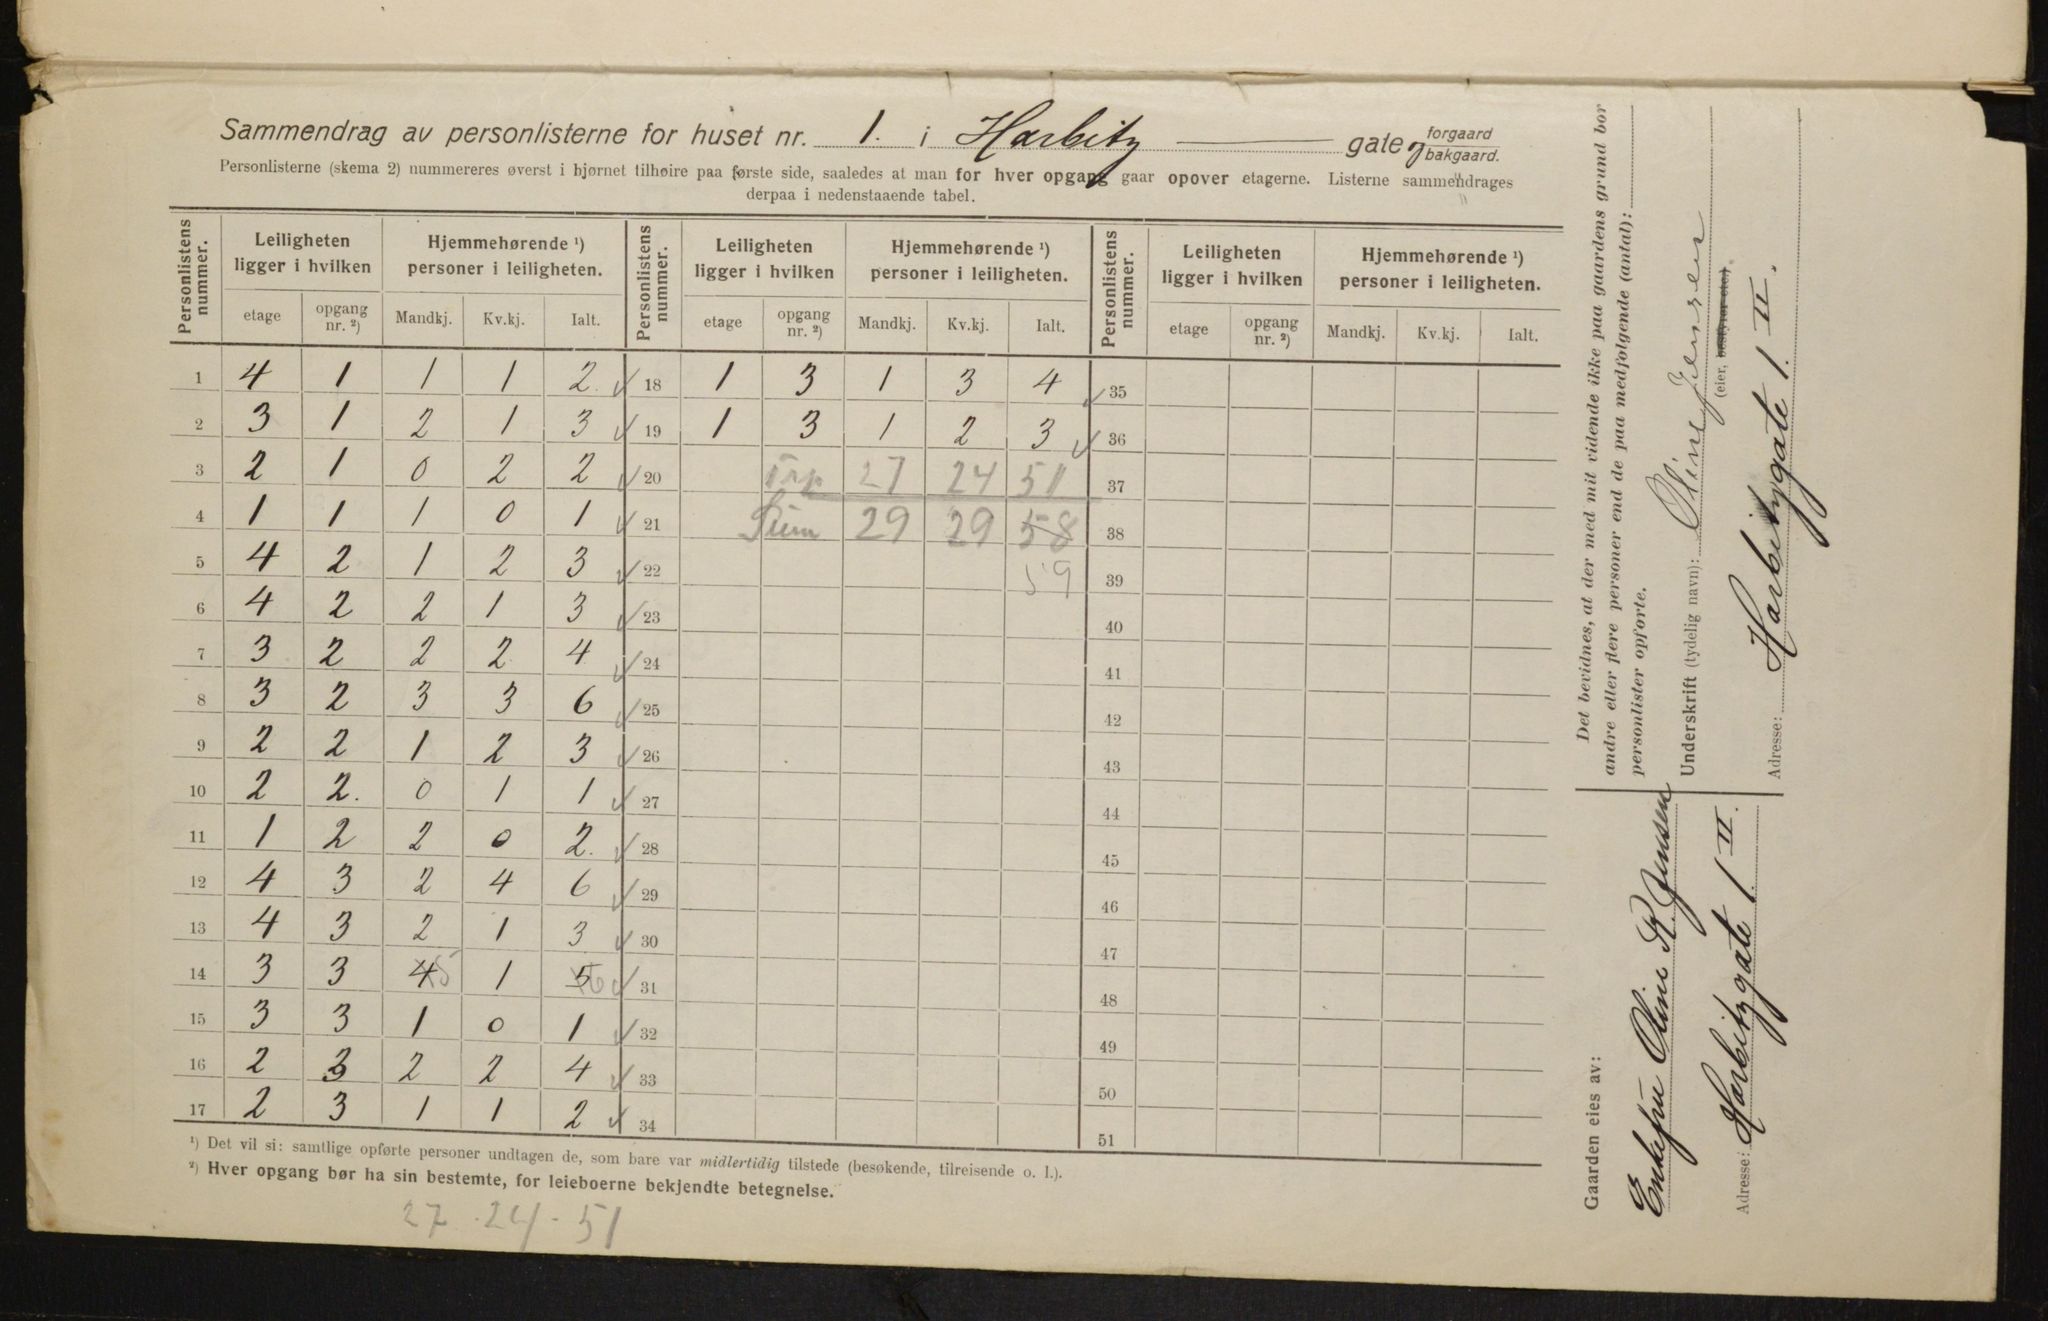 Sammendrag av personlisterne for huset nr. 1. i Harbitz gate forgaard bakgaard.
Personlisterne (skema 2) nummereres øverst i hjørnet tilhøire paa første side, saaledes at man for hver opgang gaar opover etagerne. Listerne sammendrages
derpaa i nedenstaaende tabel.
Personlistens nummer. Leiligheten ligger i hvilken Hjemmehørende ¹) personer i leiligheten. Personlistens nummer. Leiligheten ligger i hvilken Hjemmehørende ¹) personer i leiligheten. Personlistens nummer. Leiligheten ligger i hvilken Hjemmehørende ¹) personer i leiligheten.
etage opgang nr. ²) Mandkj. Kv.kj. Ialt. etage opgang nr. ²) Mandkj. Kv.kj. Ialt. etage opgang nr. ²) Mandkj. Kv.kj. Ialt.
1 4 1 1 1 2. ✓ 18 1 3 1 3 4 ✓ 35
2 3 1 2 1 3 ✓ 19 1 3 1 2 3 ✓ 36
3 2 1 0 2 2 ✓ 20 27 24 51 37
4 1 1 1 0 1 ✓ 21 Sum 29 29 58 38
5 4 2 1 2 3 ✓ 22 59 39
6 4 2 2 1 3 ✓ 23 40
7 3 2 2 2 4 ✓ 24 41
8 3 2 3 3 6 ✓ 25 42
9 2 2 1 2 3 ✓ 26 43
10 2 2. 0 1 1 ✓ 27 44
11 1 2 2 0 2. ✓ 28 45
12 4 3 2 4 6 ✓ 29 46
13 4 3 2 1 3 ✓ 30 47
14 3 3 4 5 1 5 6 ✓ 31 48
15 3 3 1 0 1 ✓ 32 49
16 2 3 2 2 4 ✓ 33 50
17 2 3 1 1 2 ✓ 34 51
¹) Det vil si: samtlige opførte personer undtagen de, som bare var midlertidig tilstede (besøkende, tilreisende o. l.).
²) Hver opgang bør ha sin bestemte, for leieboerne bekjendte betegnelse.
27 . 24 - 51
Det bevidnes, at der med mit vidende ikke paa gaardens grund bor
andre eller flere personer end de paa medfølgende (antal):
personlister opførte.
Underskrift (tydelig navn): Oline Jensen
(eier, bestyrer etc.)
Adresse: Harbitzgate 1. II.
Gaarden eies av:
Enkefru Oline K. Jensen
Adresse: Harbitzgate 1. II.